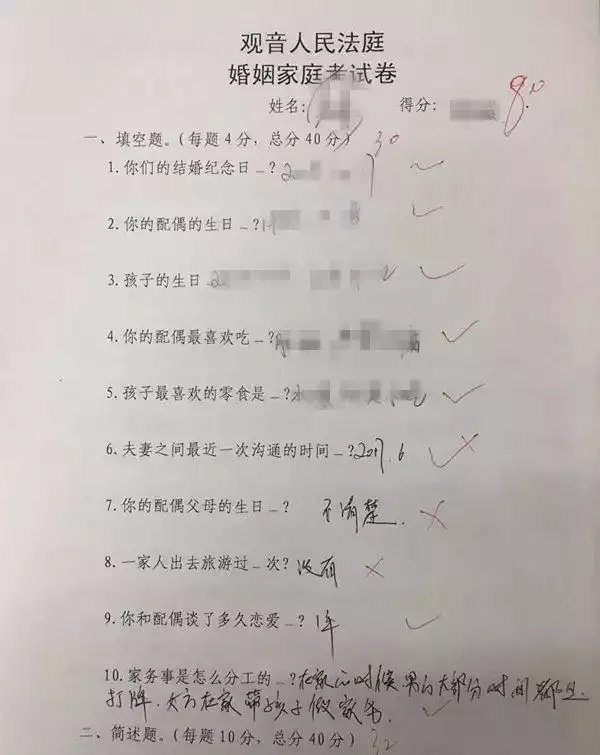 观音人民法庭
婚姻家庭考试卷
姓名: 得分: 80
一、填空题。(每题4分，总分40分) 30
1.你们的结婚纪念日_?
2.你的配偶的生日_?
3.孩子的生日
4.你的配偶最喜欢吃_?
5.孩子最喜欢的零食是_?
6.夫妻之间最近一次沟通的时间_?2017.6
7.你的配偶父母的生日_? 不清楚.
8.一家人出去旅游过_次? 没有
9.你和配偶谈了多久恋爱_? 1年
10.家务事是怎么分工的_?在家的时候 男的大部分时间都是
打牌. 女方在家带孩子做家务.
二、简述题。(每题10分，总分40分) 32